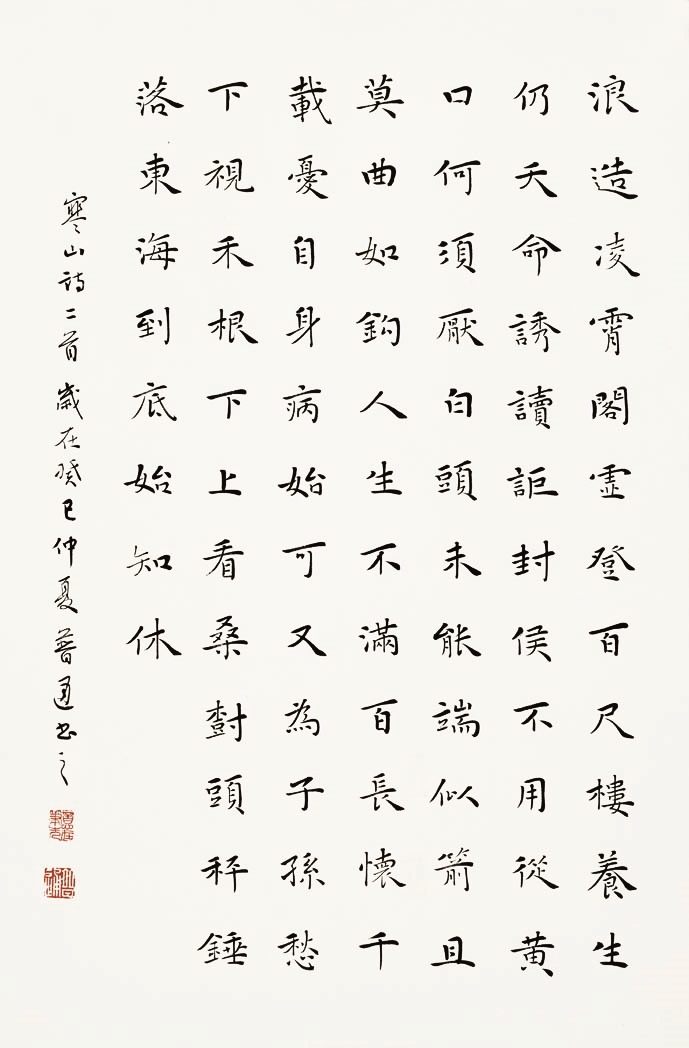 浪造凌霄閣虛登百尺樓養生
仍夭命誘讀詎封侯不用從黃
口何須厭白頭未能端似箭且
莫曲如鉤人生不滿百長懷千
載憂自身病始可又為子孫愁
下視禾根下上看桑樹頭秤錘
落東海到底始知休
寒山詩二首歲在癸巳仲夏普通书之